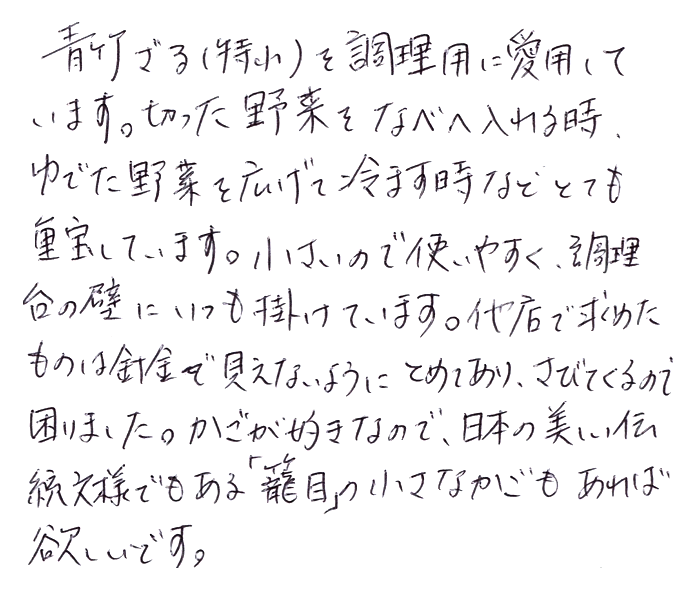 青竹ざる(特小)を調理用に愛用して
います。切った野菜をなべへ入れる時、
ゆでた野菜を広げて冷ます時などとても
重宝しています。小さいので使いやすく、調理
台の壁にいつも掛けています。他店で求めた
ものは針金で見えないようにとめてあり、さびてくるので
困りました。かごが好きなので、日本の美しい伝
統文様でもある「籠目」の小さなかごもあれば
欲しいです。